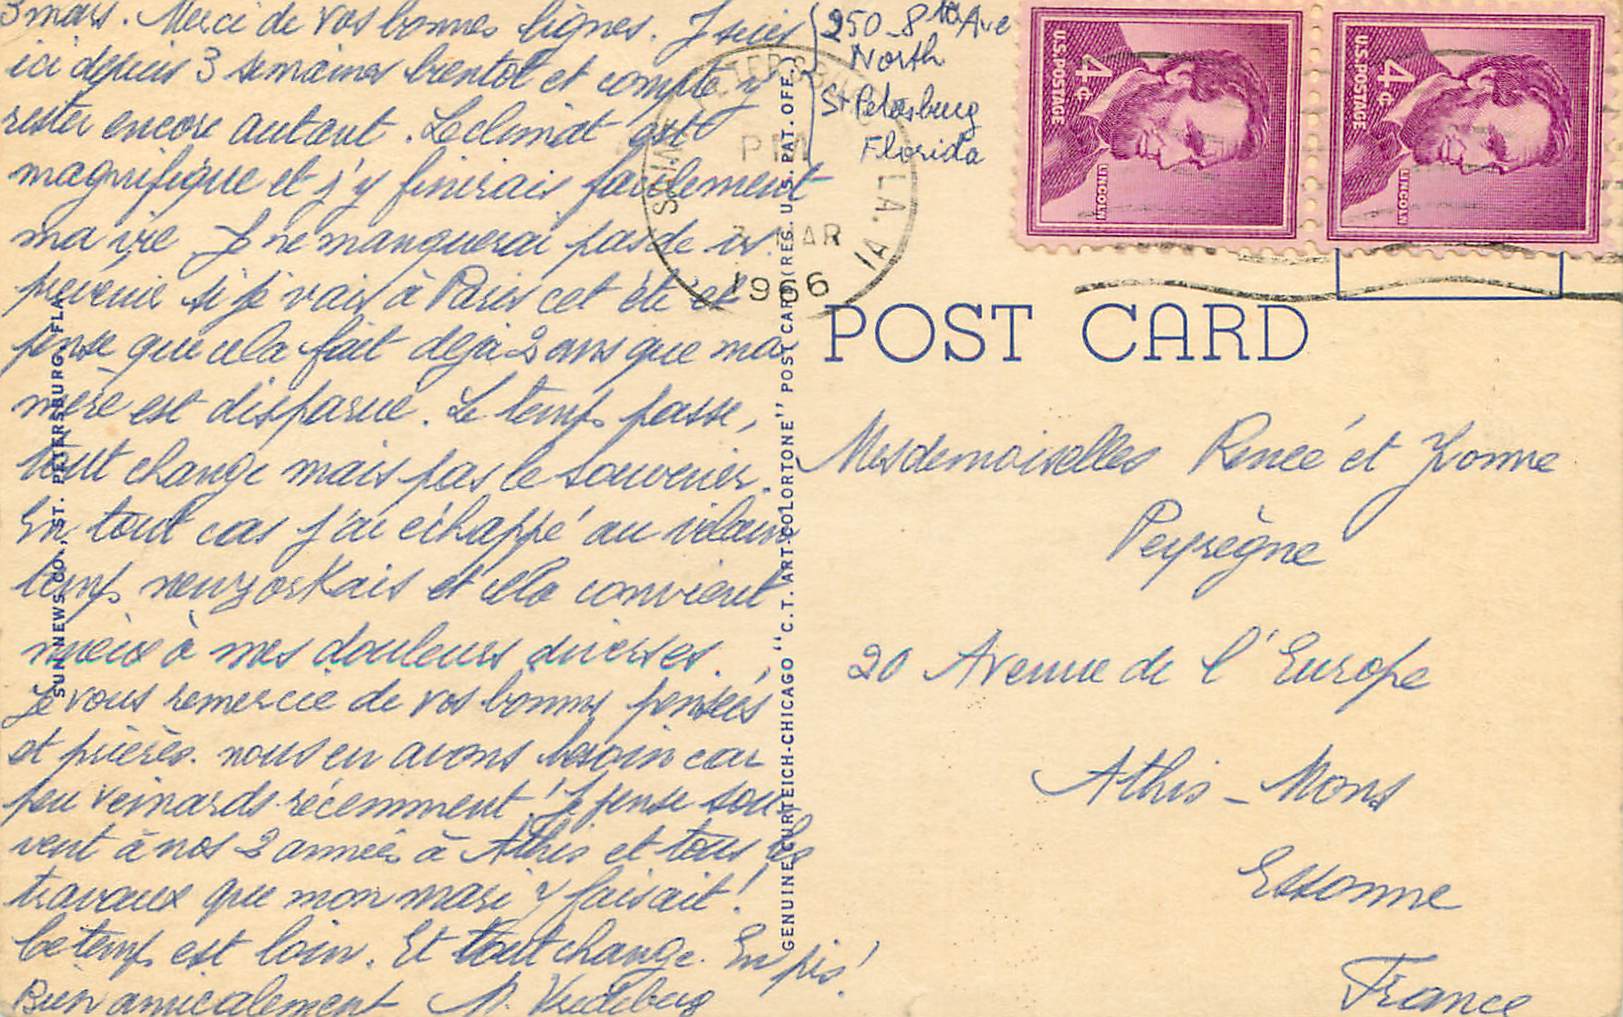 3 mars. Merci de vos bonnes lignes. Je suis
ici depuis 3 semaines bientot et compte y
rester encore autant. Le climat est
magnifique et j'y finirais facilement
ma vie Je ne manquerai pas de
prévenir si je vais à Paris cet été et
pense que cela fait deja 2 ans que ma
mère est disparue. Le temps passe,
tout change mais pas le souvenir.
En tout cas j'ai échappé au vilain
temps newyorkais et cela convient
mieux à mes douleurs diverses.
Je vous remercie de vos bonnes pensées
et prières. nous en avons besoin car
peu veinards récemment! Je pense sou-
vent à nos 2 années à Athis et tous les
travaux que mon mari y faisait!
Ce temps est loin. Et tout change. En pis!
Bien amicalement
250-8th Ave
North
St Petersburg
Florida
PM
MAR
1966
U.S. POSTAGE
4¢
LINCOLN
U.S. POSTAGE
4¢
LINCOLN
POST CARD
Mesdemoiselles Renée et Yvonne
Peyrègne
20 Avenue de l'Europe
Athis-Mons
Essonne
France
SUN NEWS CO., ST. PETERSBURG, FLA.
GENUINE CURTEICH-CHICAGO "C.T. ART-COLORTONE" POST CARD (REG. U.S. PAT. OFF.)